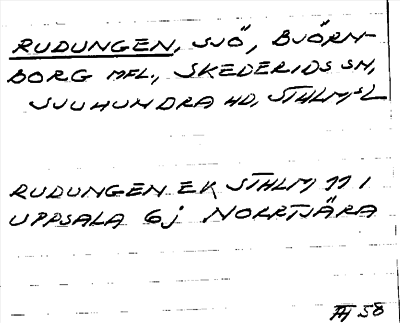 RUDUNGEN, SJÖ, BJÖRN-
BORG MFL., SKEDERIDS SN,
SJUHUNDRA HD, STHLM,SL
RUDUNGEN EK STHLM 11 I
UPPSALA 6j NORRTJÄRA
ÅH 58